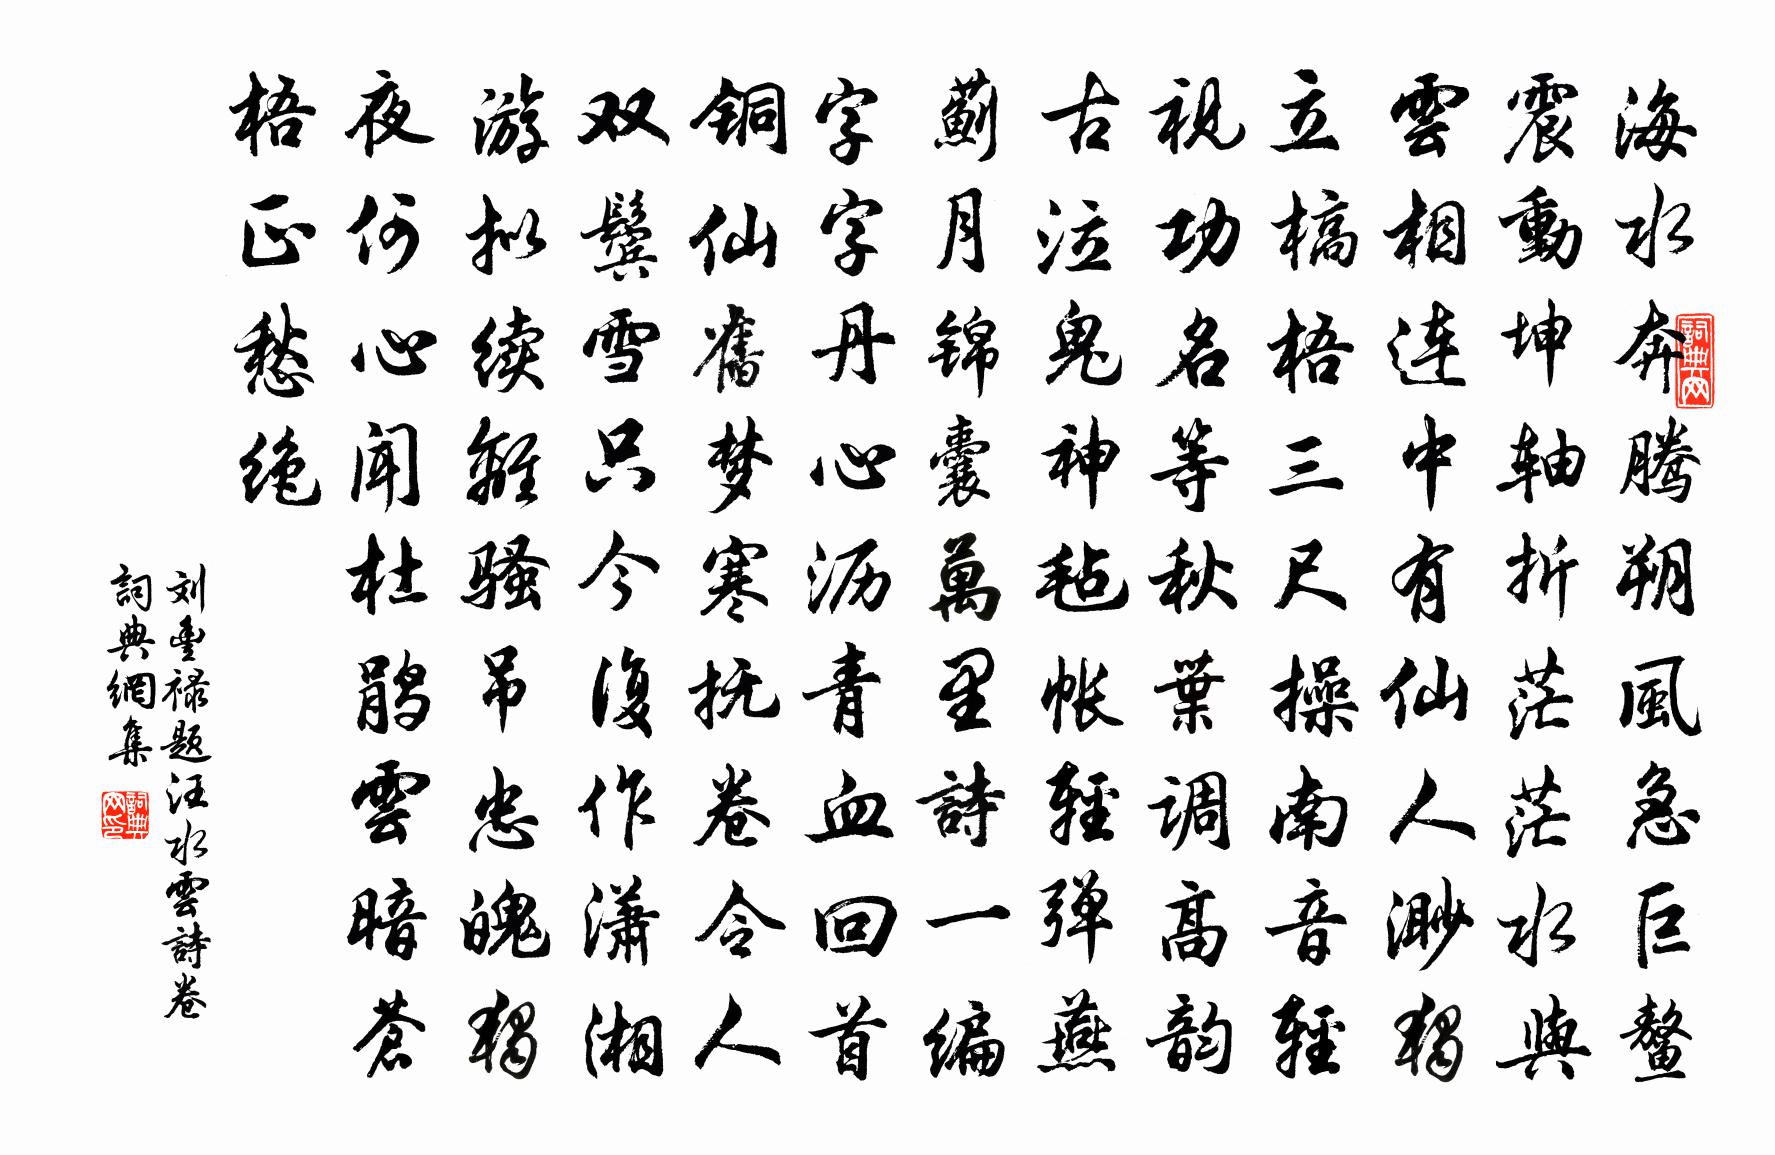 海水奔腾朔風急巨鳌
震動坤轴折茫茫水與
雲相连中有仙人渺獨
立槁梧三尺操南音輕
視功名等秋葉调高韵
古泣鬼神毡帐輕弹燕
薊月锦囊萬里詩一编
字字丹心沥青血回首
铜仙舊梦寒抚卷令人
双鬓雪只今復作潇湘
游拟续離骚吊忠魄獨
夜何心闻杜鹃雲暗蒼
梧正愁绝
刘豊禄题汪水雲詩卷
詞典網集
詞典网
詞典网印